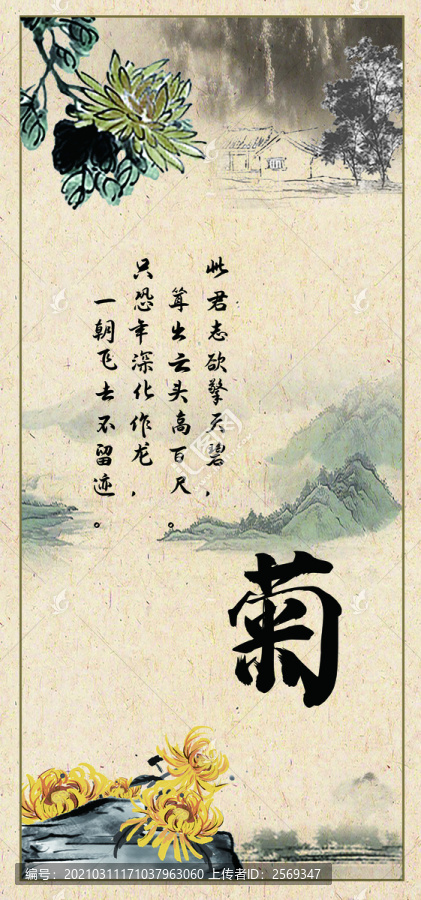 此君志欲擎天碧，
耸出云头高百尺。
只恐年深化作龙，
一朝飞去不留迹。
菊
编号：20210311171037963060 上传者ID：2569347